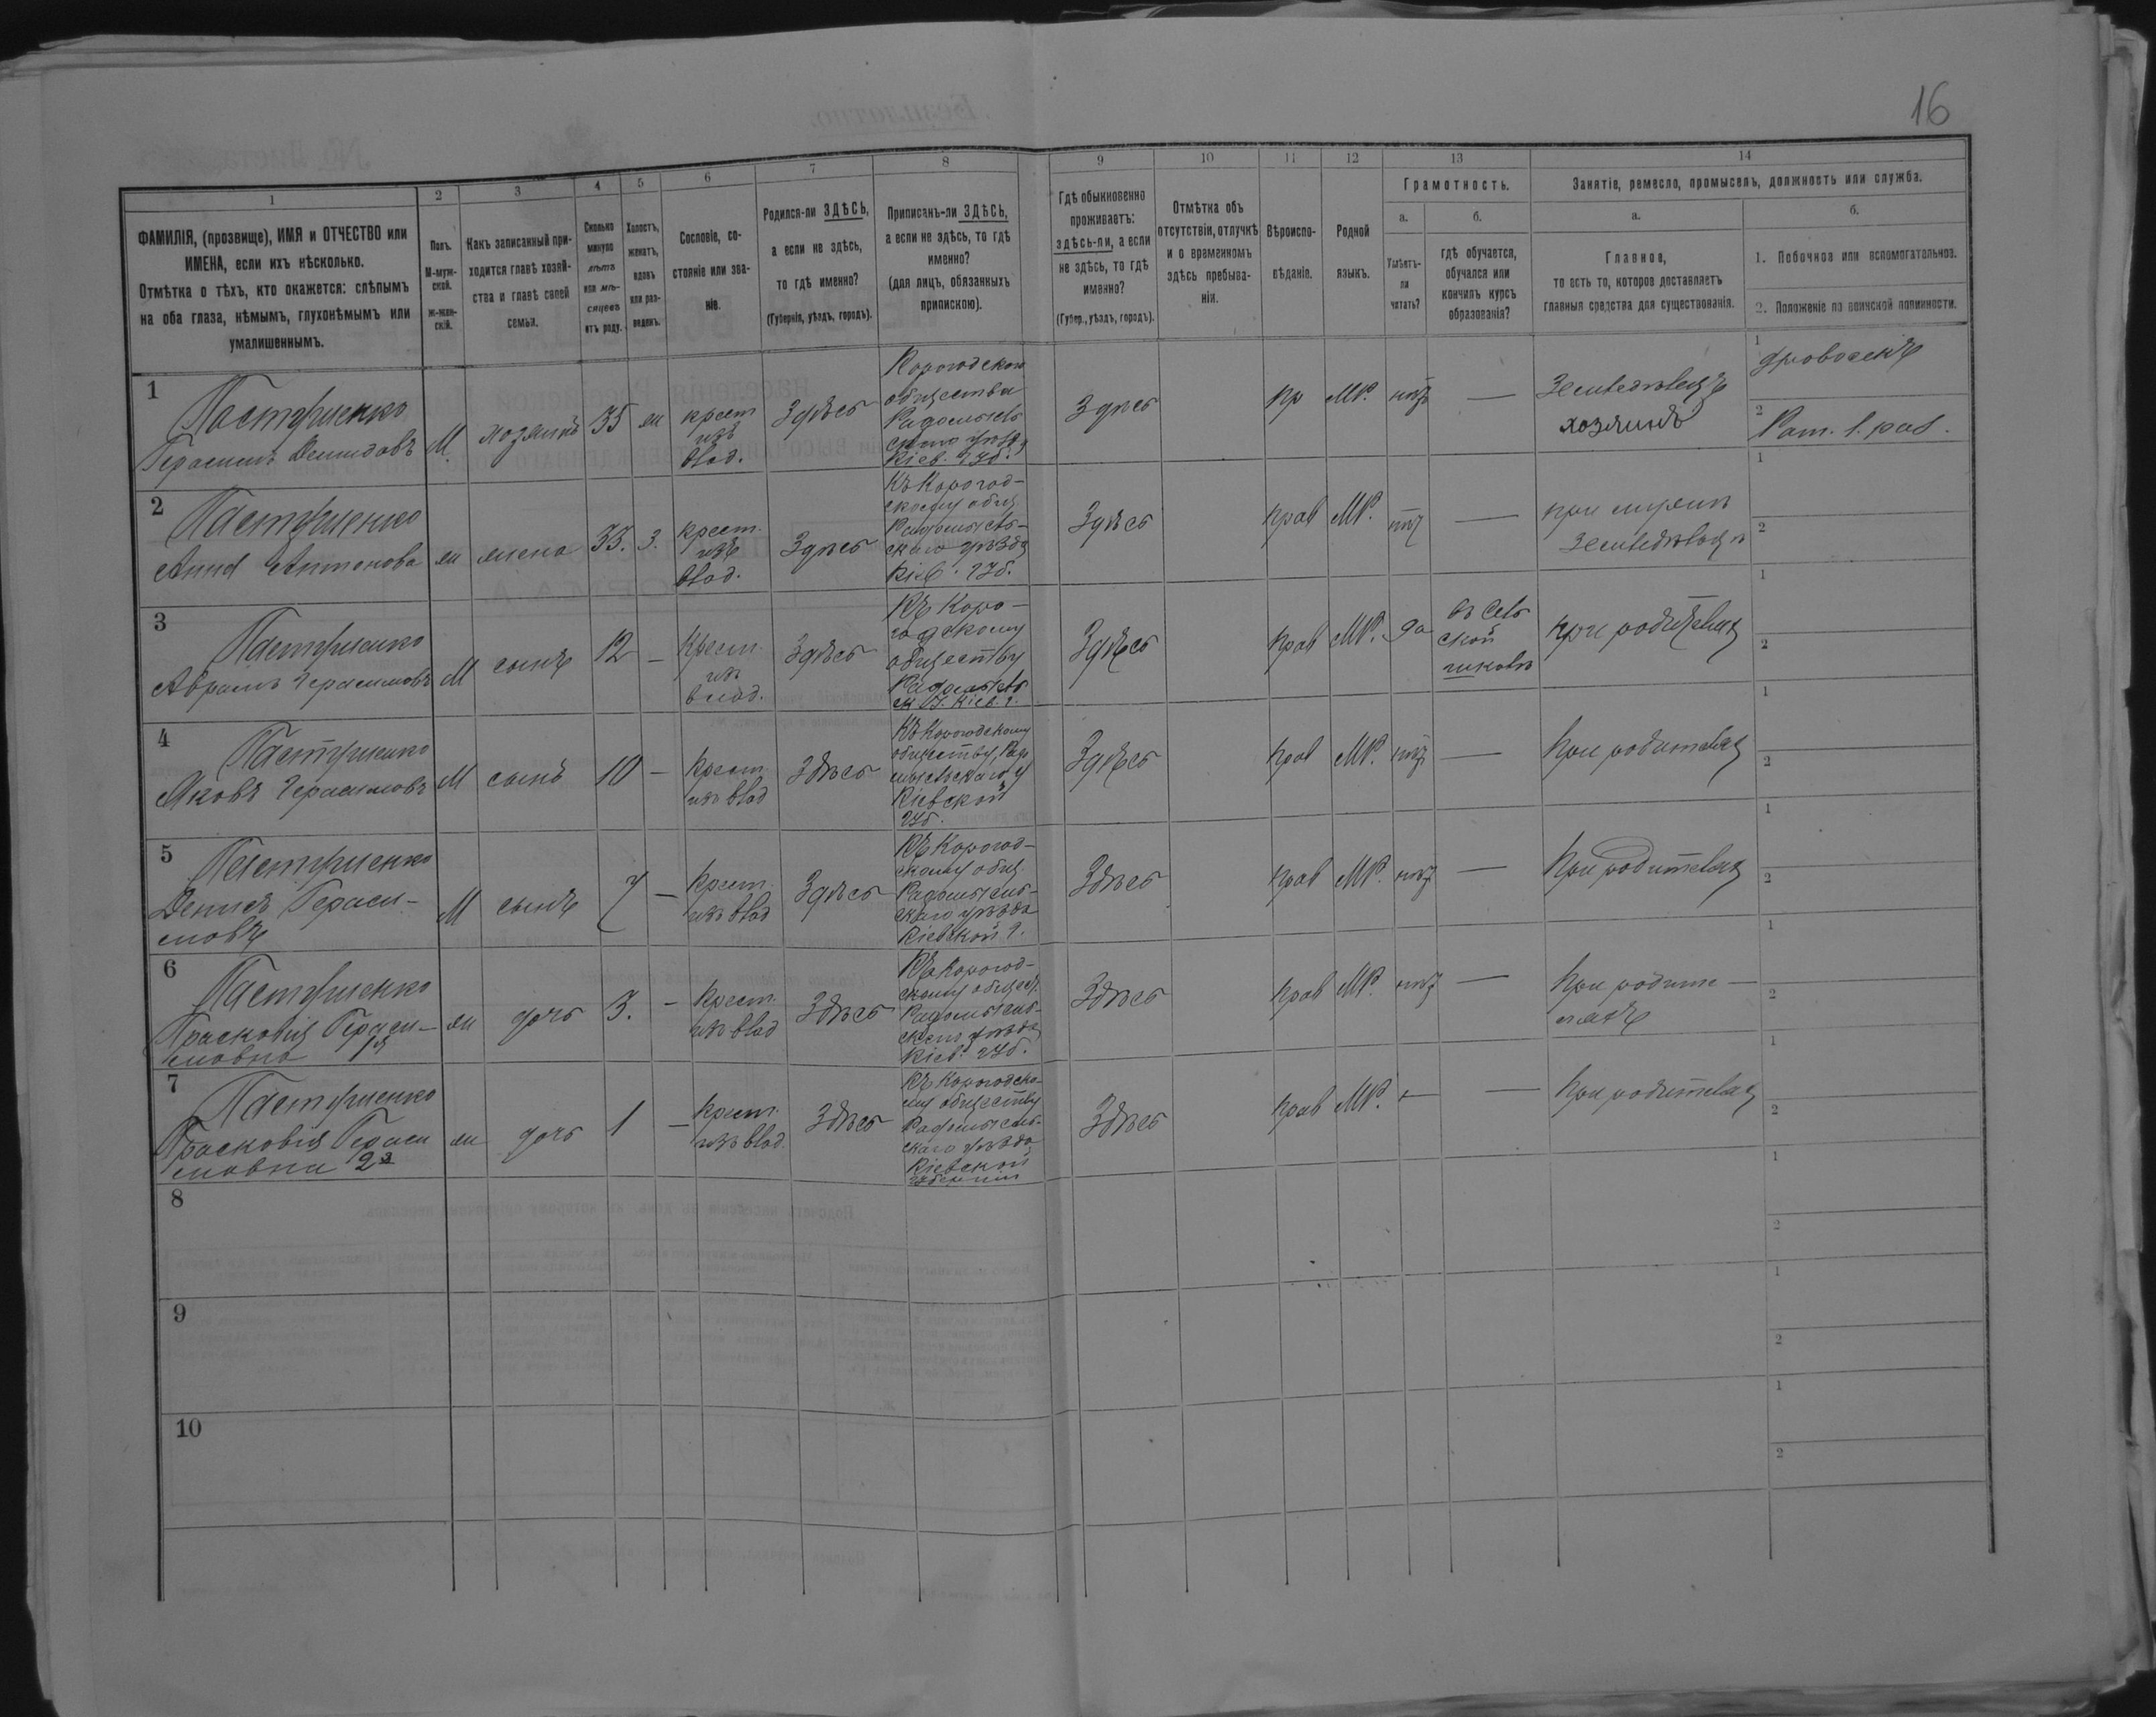 16
1 2 3 4 5 6 7 8 9 10 11 12 13 14
ФАМИЛІЯ, (прозвище), ИМЯ и ОТЧЕСТВО или
ИМЕНА, если ихъ нѣсколько.
Отмѣтка о тѣхъ, кто окажется: слѣпымъ
на оба глаза, нѣмымъ, глухонѣмымъ или
умалишеннымъ.
Полъ.
М-муж-
ской.
Ж-жен-
скій.
Какъ записанный при-
ходится главѣ хозяй-
ства и главѣ своей
семьи.
Сколько
минуло
лѣтъ
или мѣ-
сяцевъ
отъ роду.
Холостъ,
женатъ,
вдовъ
или раз-
веденъ.
Сословіе, со-
стояніе или зва-
ніе.
Родился-ли ЗДѢСЬ,
а если не здѣсь,
то гдѣ именно?
(Губернія, уѣздъ, городъ).
Приписанъ-ли ЗДѢСЬ,
а если не здѣсь, то гдѣ
именно?
(для лицъ, обязанныхъ
припискою).
Гдѣ обыкновенно
проживаетъ:
здѣсь-ли, а если
не здѣсь, то гдѣ
именно?
(Губер., уѣздъ, городъ).
Отмѣтка объ
отсутствіи, отлучкѣ
и о временномъ
здѣсь пребыва-
ніи.
Вѣроиспо-
вѣданіе.
Родной
языкъ.
Грамотность.
а.
Умѣетъ-
ли
читать?
б.
гдѣ обучается,
обучался или
кончилъ курсъ
образованія?
Занятіе, ремесло, промыселъ, должность или служба.
а.
Главное,
то есть то, которое доставляетъ
главныя средства для существованія.
б.
1. Побочное или вспомогательное.
2. Положеніе по воинской повинности.
1
Пастушенко
Герасимъ Демидовъ
М.
хозяинъ
35
ж
крест
изъ
влад.
Здѣсь
Корогодского
общества
Радомысль
ского уѣзда
Кіев. губ.
Здѣсь
пр
МР.
нѣтъ
—
Земледѣлецъ
хозяинъ
1
дровосекъ
2
Рат. 1. раз.
2
Пастушенко
Анна Антонова
ж
жена
33.
З.
крест.
изъ
влад.
Здѣсь
Къ Корогод-
скому общ
Радомысль-
скаго уѣзда
Кіев. губ.
Здѣсь
прав
МР.
нѣтъ
—
при мужѣ
земледѣльцѣ
1
2
3
Пастушенко
Аврамъ Герасимовъ
М
сынъ
12
—
Крест.
изъ
влад.
Здѣсь
Къ Коро-
годскому
обществу
Радомысль
ск У. Кіев. г.
Здѣсь
прав
МР.
да
въ сель
ской
школѣ
при родителяхъ
1
2
4
Пастушенко
Яковъ Герасимовъ
М
сынъ
10
—
Крест.
изъ влад
Здѣсь
Къ Корогодскому
обществу, Радо
мысльскаго у
Кіевской
губ.
Здѣсь
прав
МР.
нѣтъ
—
При родителяхъ
1
2
5
Пастушенко
Денисъ Гераси-
мовъ
М
сынъ
7
—
Крест.
изъ влад
Здѣсь
Къ Корогод-
скому общ.
Радомысль-
скаго уѣзда
Кіевской г.
Здѣсь
прав
МР.
нѣтъ
—
При родителяхъ
1
2
6
Пастушенко
Прасковія Гераси-
мовна 1я
ж
дочь
3.
—
Крест.
изъ влад
Здѣсь
Къ Корогод-
скому общест.
Радомысль-
скаго уѣзда
Кіев. губ.
Здѣсь
прав
МР.
нѣтъ
—
При родите-
ляхъ
1
2
7
Пастушенко
Прасковія Гераси
мовна 2я
ж
дочь
1
—
Крест.
изъ влад.
Здѣсь
Къ Корогодско-
му обществу
Радомысль-
скаго уѣзда
Кіевской
губерніи
Здѣсь
прав
МР.
—
—
При родителяхъ
1
2
8
1
2
9
1
2
10
1
2